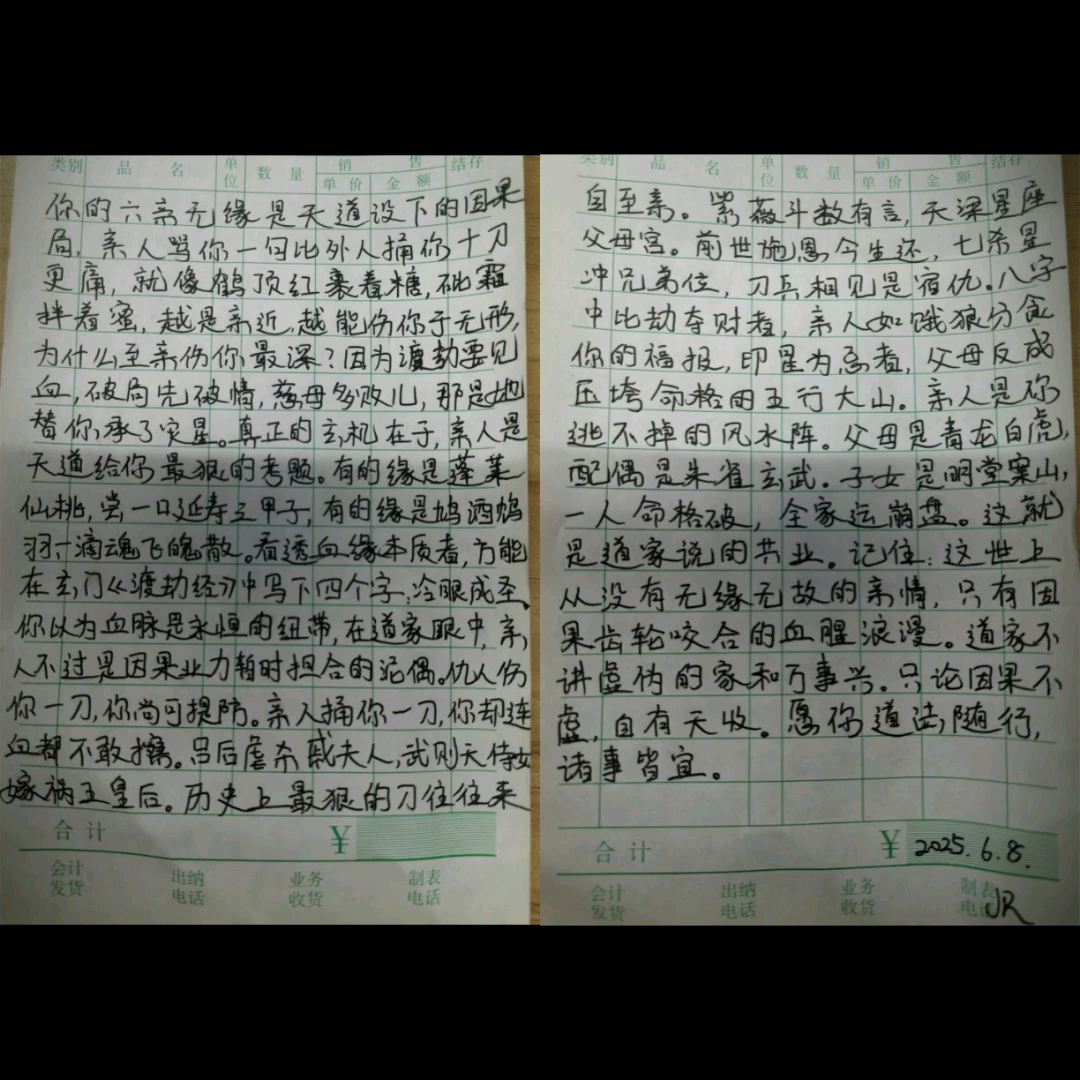 类别 品名 单位 数量 销售 单价 金额 结存
你的六亲无缘是天道设下的因果
局,亲人骂你一句比外人捅你十刀
更痛,就像鹤顶红裹着糖,砒霜
拌着蜜,越是亲近,越能伤你于无形,
为什么至亲伤你最深?因为渡劫要见
血,破局先破情,慈母多败儿,那是她
替你承了灾星。真正的玄机在于,亲人是
天道给你最狠的考题。有的缘是蓬莱
仙桃,尝一口延寿三甲子,有的缘是鸩酒鸩
羽,一滴魂飞魄散。看透血缘本质者,方能
在玄门《渡劫经》中写下四个字,冷眼成圣、
你以为血脉是永恒的纽带,在道家眼中,亲
人不过是因果业力暂时担合的泥偶。仇人伤
你一刀,你尚可提防。亲人捅你一刀,你却连
血都不敢擦。吕后虐杀戚夫人,武则天侍女
嫁祸王皇后。历史上最狠的刀往往来
合计 ¥
会计 发货 出纳 电话 业务 收货 制表 电话
类别 品名 单位 数量 销售 单价 金额 结存
自至亲。紫薇斗数有言,天梁星座
父母宫。前世施恩今生还,七杀星
冲兄弟位,刀兵相见是宿仇。八字
中比劫夺财者,亲人如饿狼分食
你的福报,印星为忌者,父母反成
压垮命格的五行大山。亲人是你
逃不掉的风水阵。父母是青龙白虎,
配偶是朱雀玄武。子女是明堂案山,
一人命格破,全家运崩盘。这就
是道家说的共业。记住:这世上
从没有无缘无故的亲情,只有因
果齿轮咬合的血腥浪漫。道家不
讲虚伪的家和万事兴。只论因果不
虚,自有天收。愿你道法随行,
诸事皆宜。
合计 ¥ 2025.6.8.
会计 发货 出纳 电话 业务 收货 制表 电话
JR